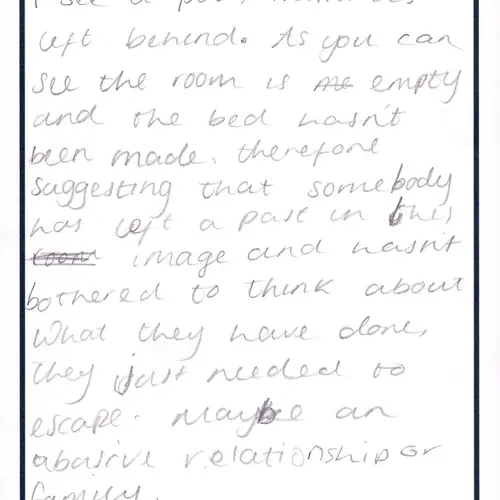 I see a
left behind. As you can
see the room is me empty
and the bed hasn't
been made. therefore
suggesting that somebody
has left a past in this
room image and hasn't
bothered to think about
what they have done,
they just needed to
escape. Maybe an
abusive relationship or
family.